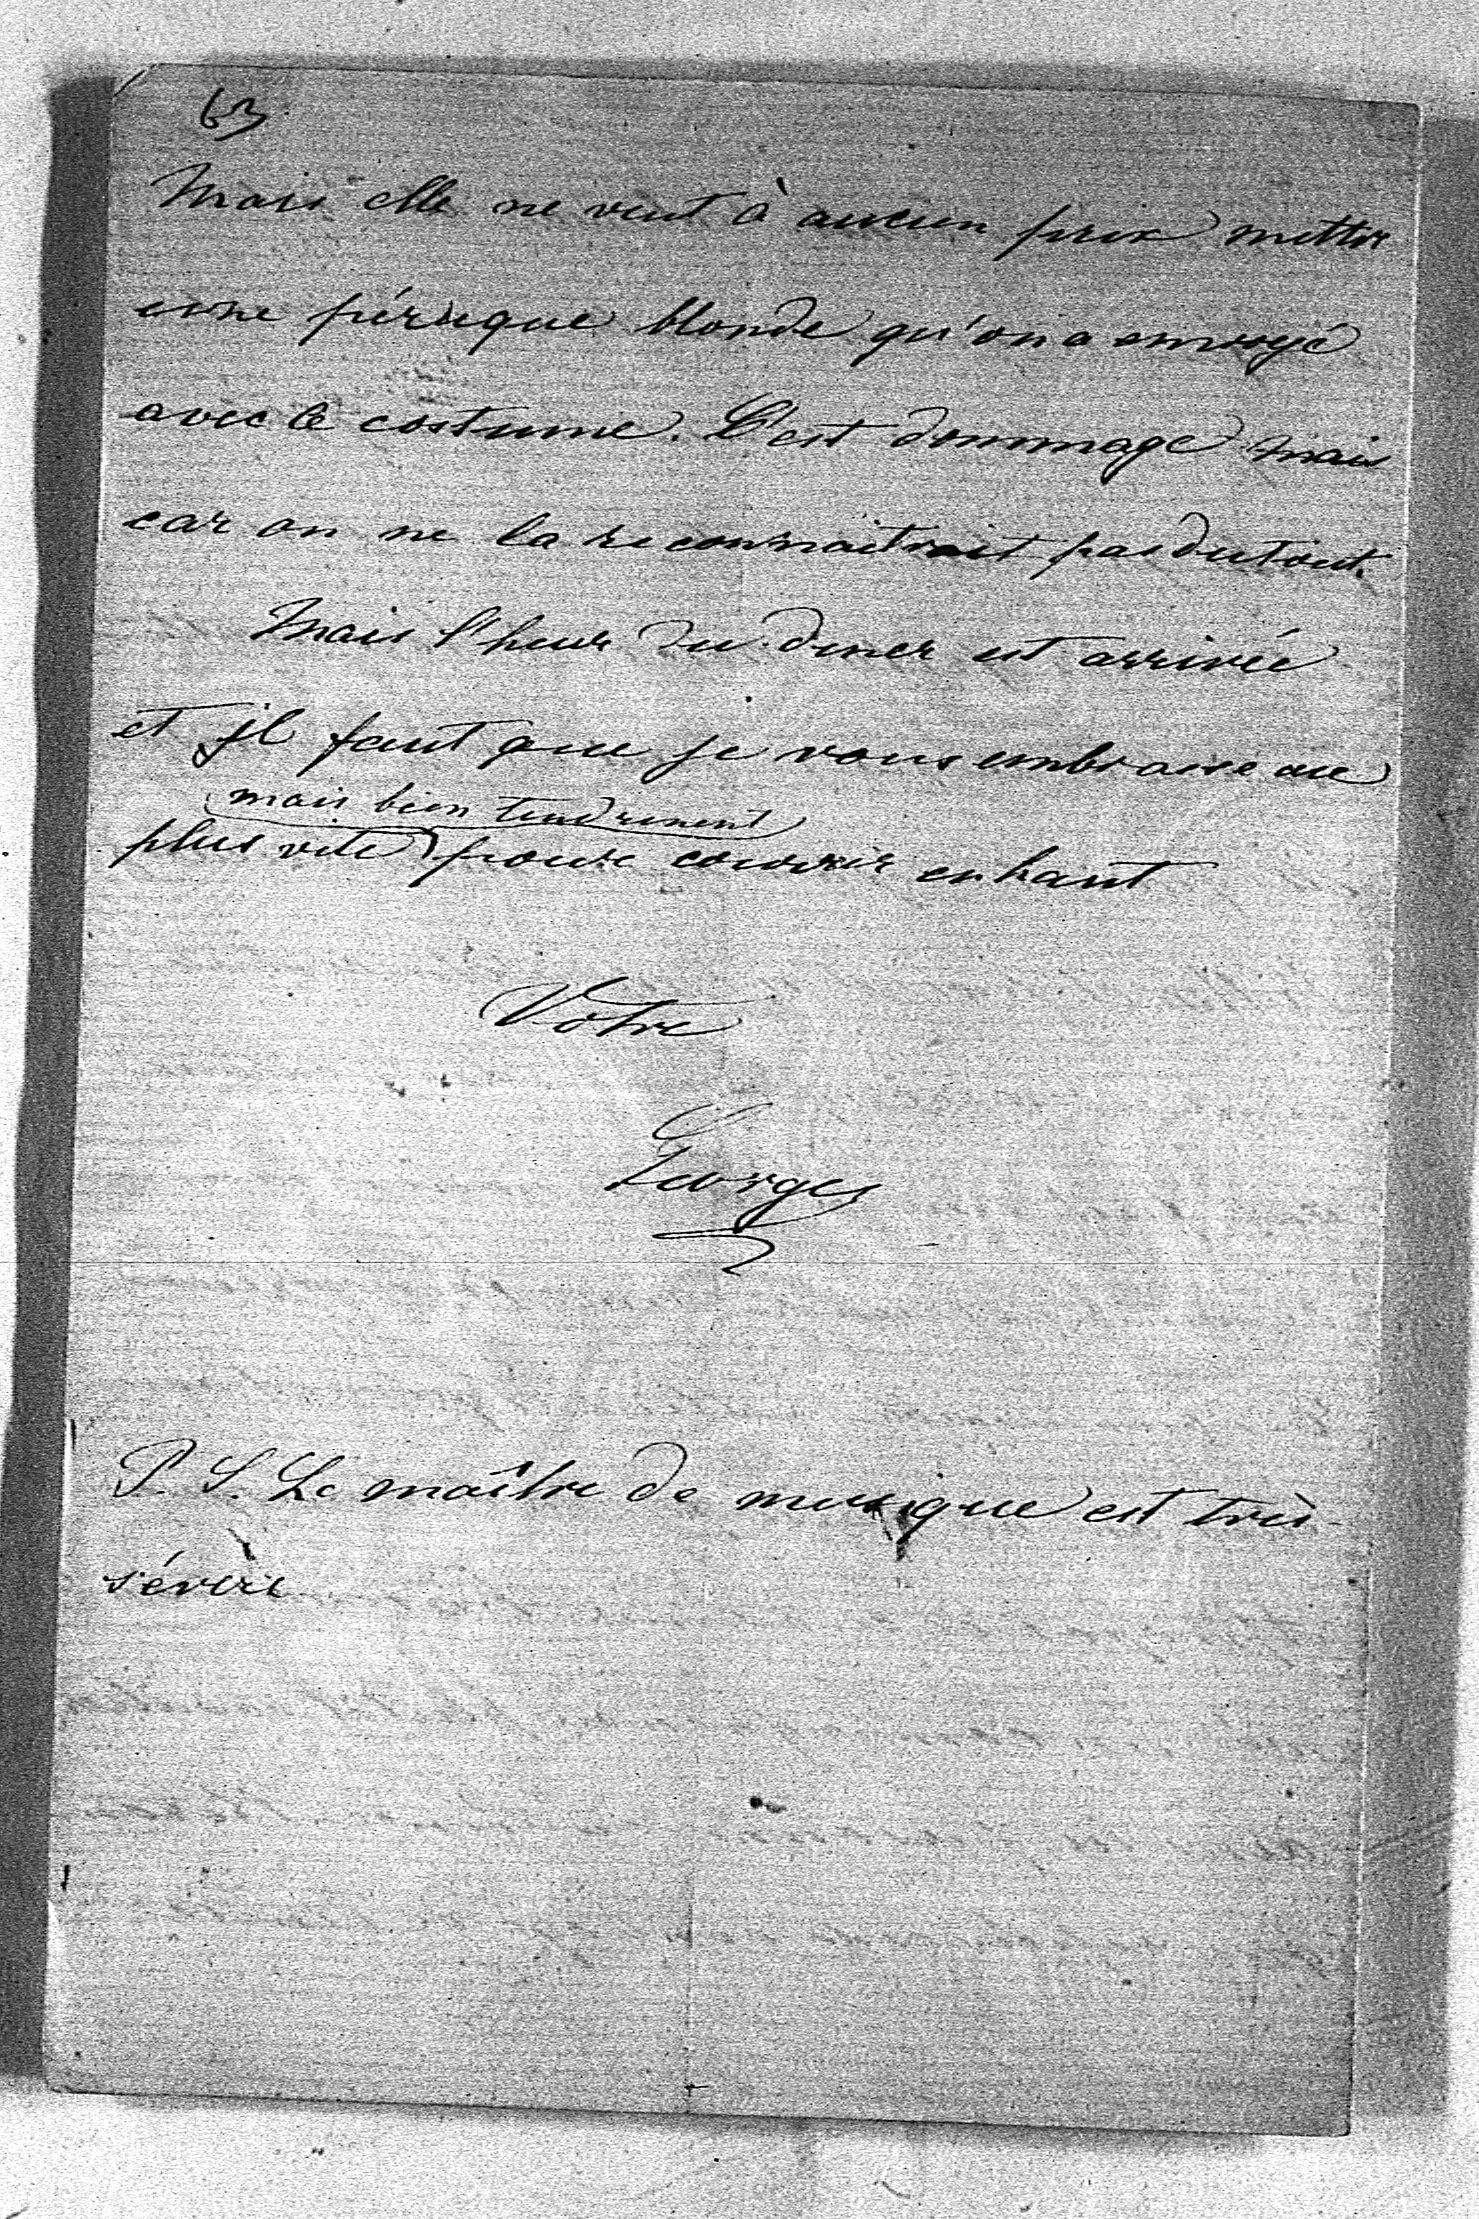 63
Mais elle ne veut à aucun prix mettre
une péruque blonde qu'on a envoyé
avec le costume. C'est dommage mais
car on ne la reconnaitrait pas du tout.
Mais l'heure du diner est arrivée
et il faut que je vous embrasse au
mais bien tendrement
plus vite pour courrir en haut
Votre
Georges
P. S. Le maître de musique est très
sévère